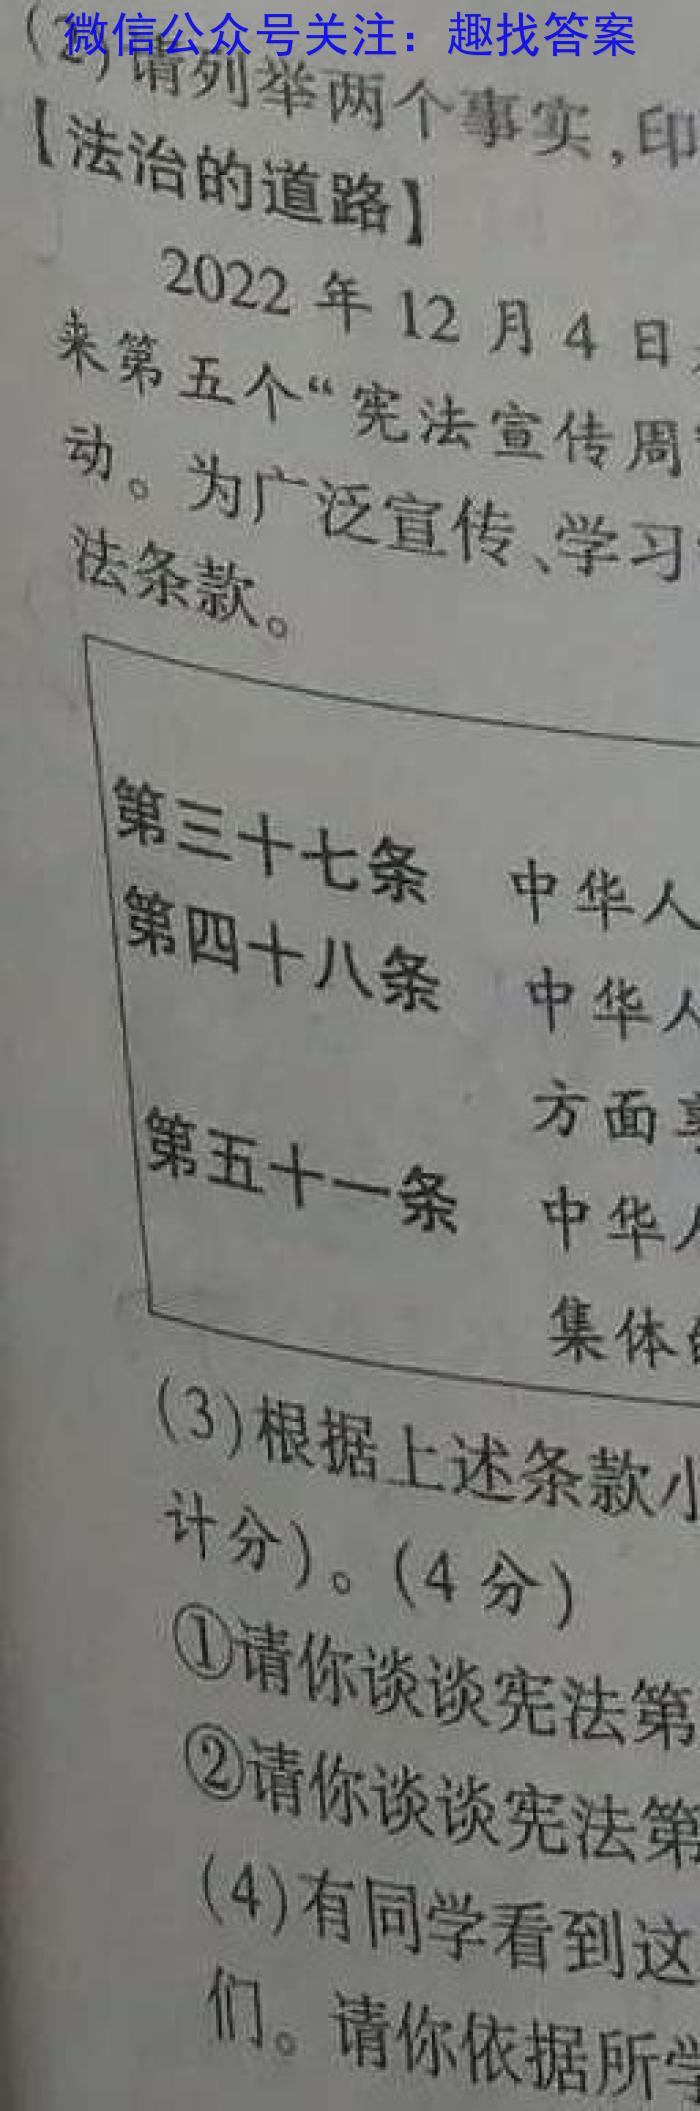 微信公众号关注：趣找答案
(2)请列举两个事实,印
【法治的道路】
2022 年 12 月 4 日
来第五个“宪法宣传周
动。为广泛宣传、学习
法条款。
第三十七条 中华人
第四十八条 中华人
方面
第五十一条 中华人
集体
(3)根据上述条款小
计分)。(4 分)
①请你谈谈宪法第
②请你谈谈宪法第
(4)有同学看到这
们。请你依据所学